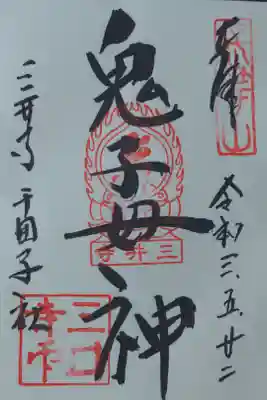 奉拝
令和三、五、廿二
鬼子母神
三井寺
三井寺 千団子社